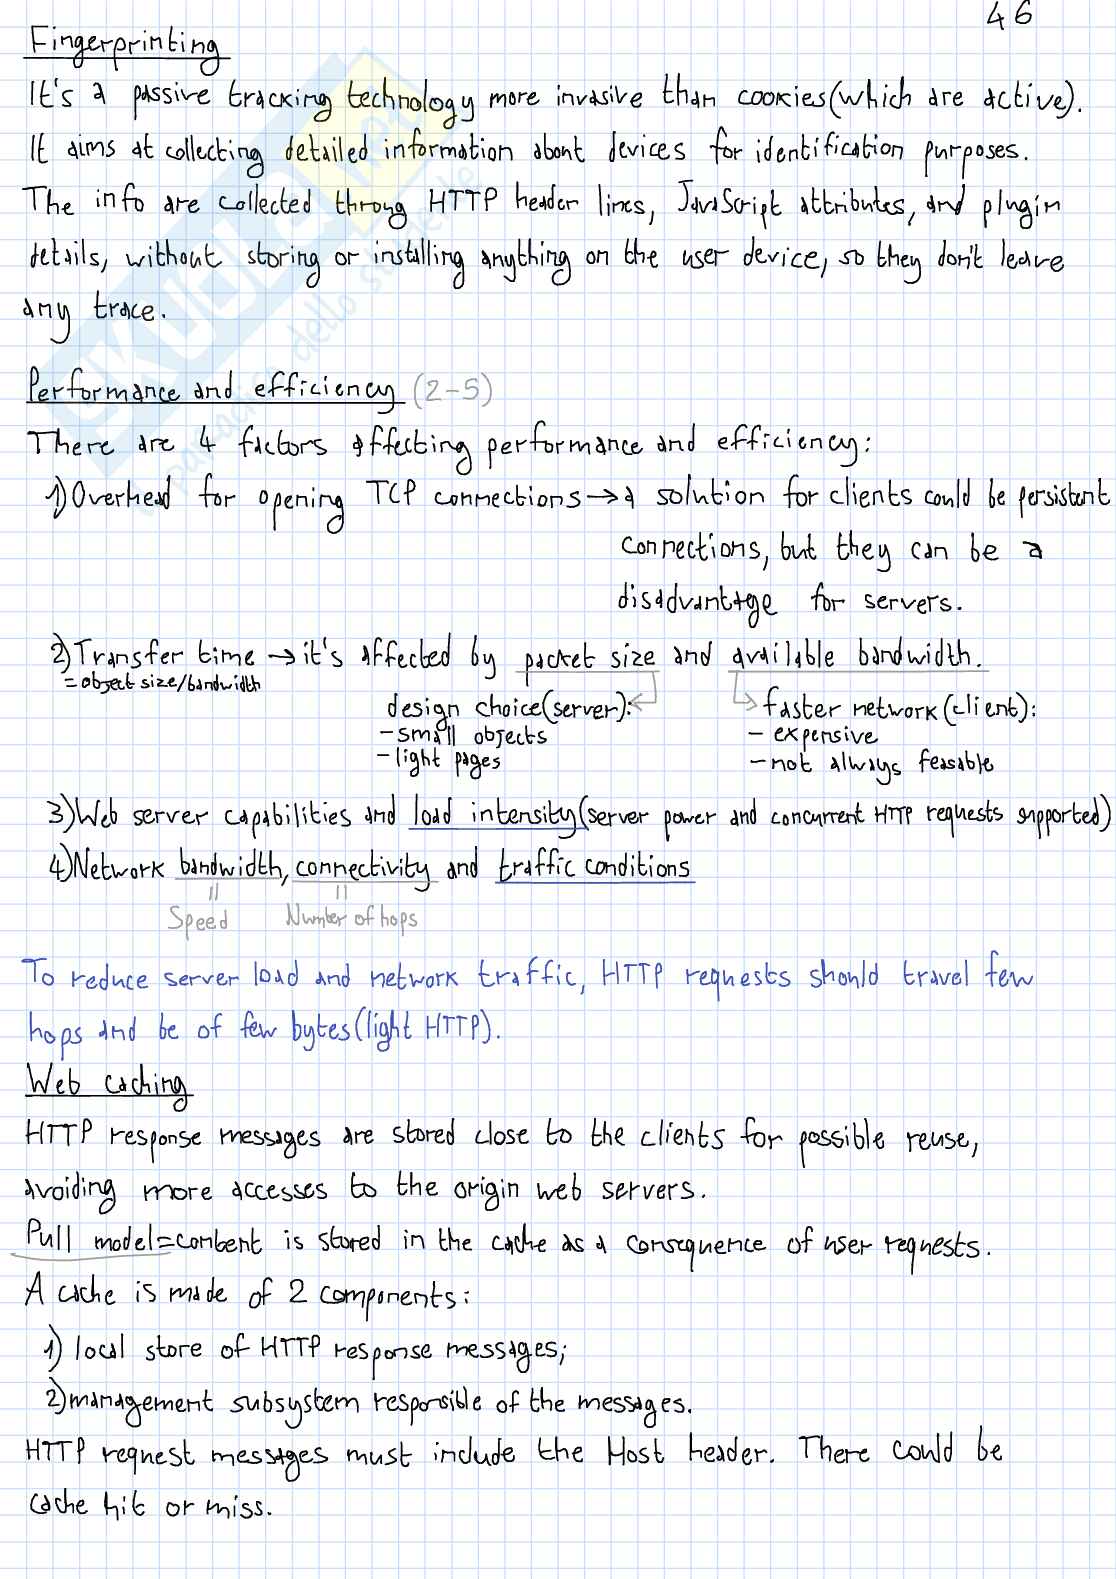 46
Fingerprinting
It's a passive tracking technology more invasive than cookies(which are active).
It aims at collecting detailed information about devices for identification purposes.
The info are collected throug HTTP header lines, JavaScript attributes, and plugin
details, without storing or installing anything on the user device, so they don't leave
any trace.
Performance and efficiency (2-5)
There are 4 factors affecting performance and efficiency:
1)Overhead for opening TCP connections→a solution for clients could be persistent
connections, but they can be a
disadvantage for servers.
2)Transfer time →it's affected by packet size and available bandwidth.
=object size/bandwidth
design choice(server): faster network(client):
-small objects - expensive
-light pages -not always feasable
3)Web server capabilities and load intensity(server power and concurrent HTTP requests supported)
4)Network bandwidth, connectivity and traffic conditions
Speed Number of hops
To reduce server load and network traffic, HTTP requests should travel few
hops and be of few bytes(light HTTP).
Web caching
HTTP response messages are stored close to the clients for possible reuse,
avoiding more accesses to the origin web servers.
Pull model=content is stored in the cache as a consequence of user requests.
A cache is made of 2 components:
1) local store of HTTP response messages;
2)management subsystem responsible of the messages.
HTTP request messages must include the Host header. There could be
cache hit or miss.
SKUOLA.net